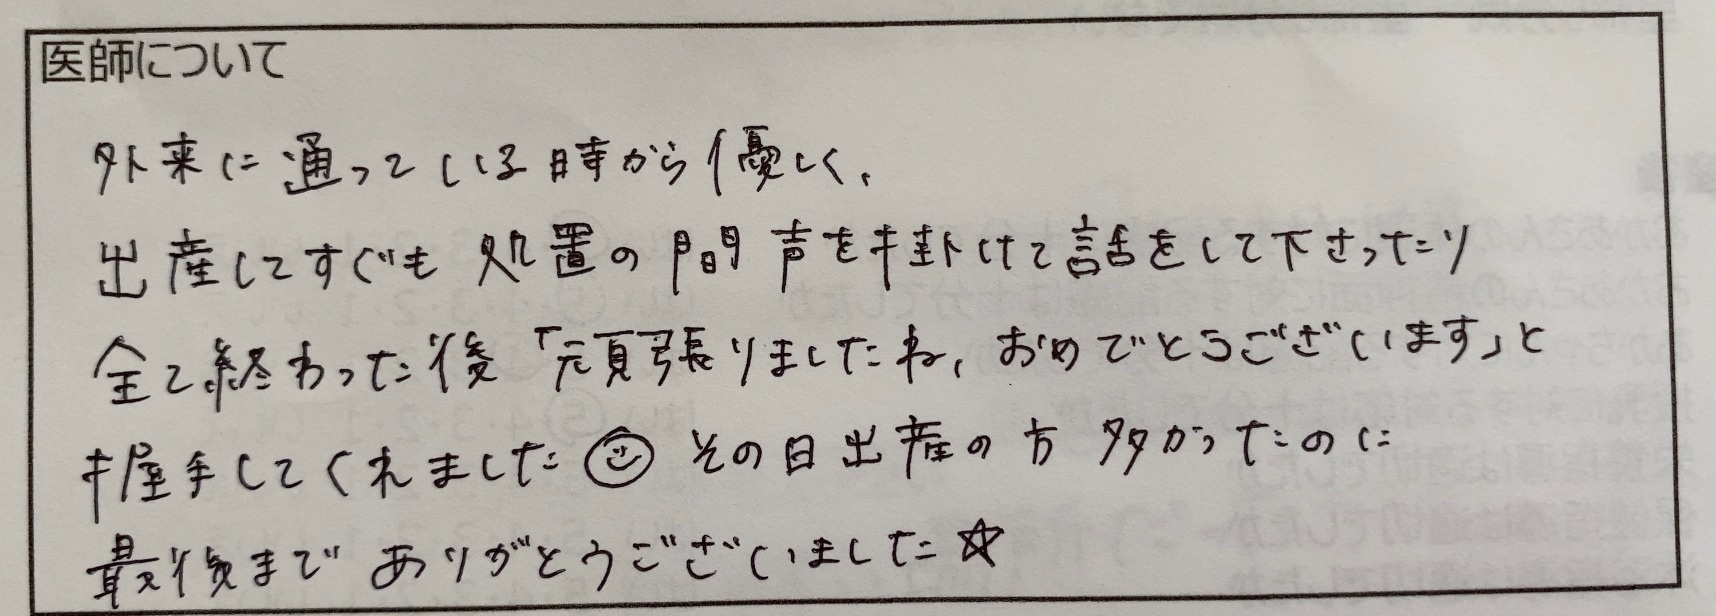 医師について
外来に通っている時から優しく、
出産してすぐも処置の間声を掛けて話をして下さったり
全て終わった後「頑張りましたね、おめでとうございます」と
握手してくれました☺その日出産の方多かったのに
最後までありがとうございました☆